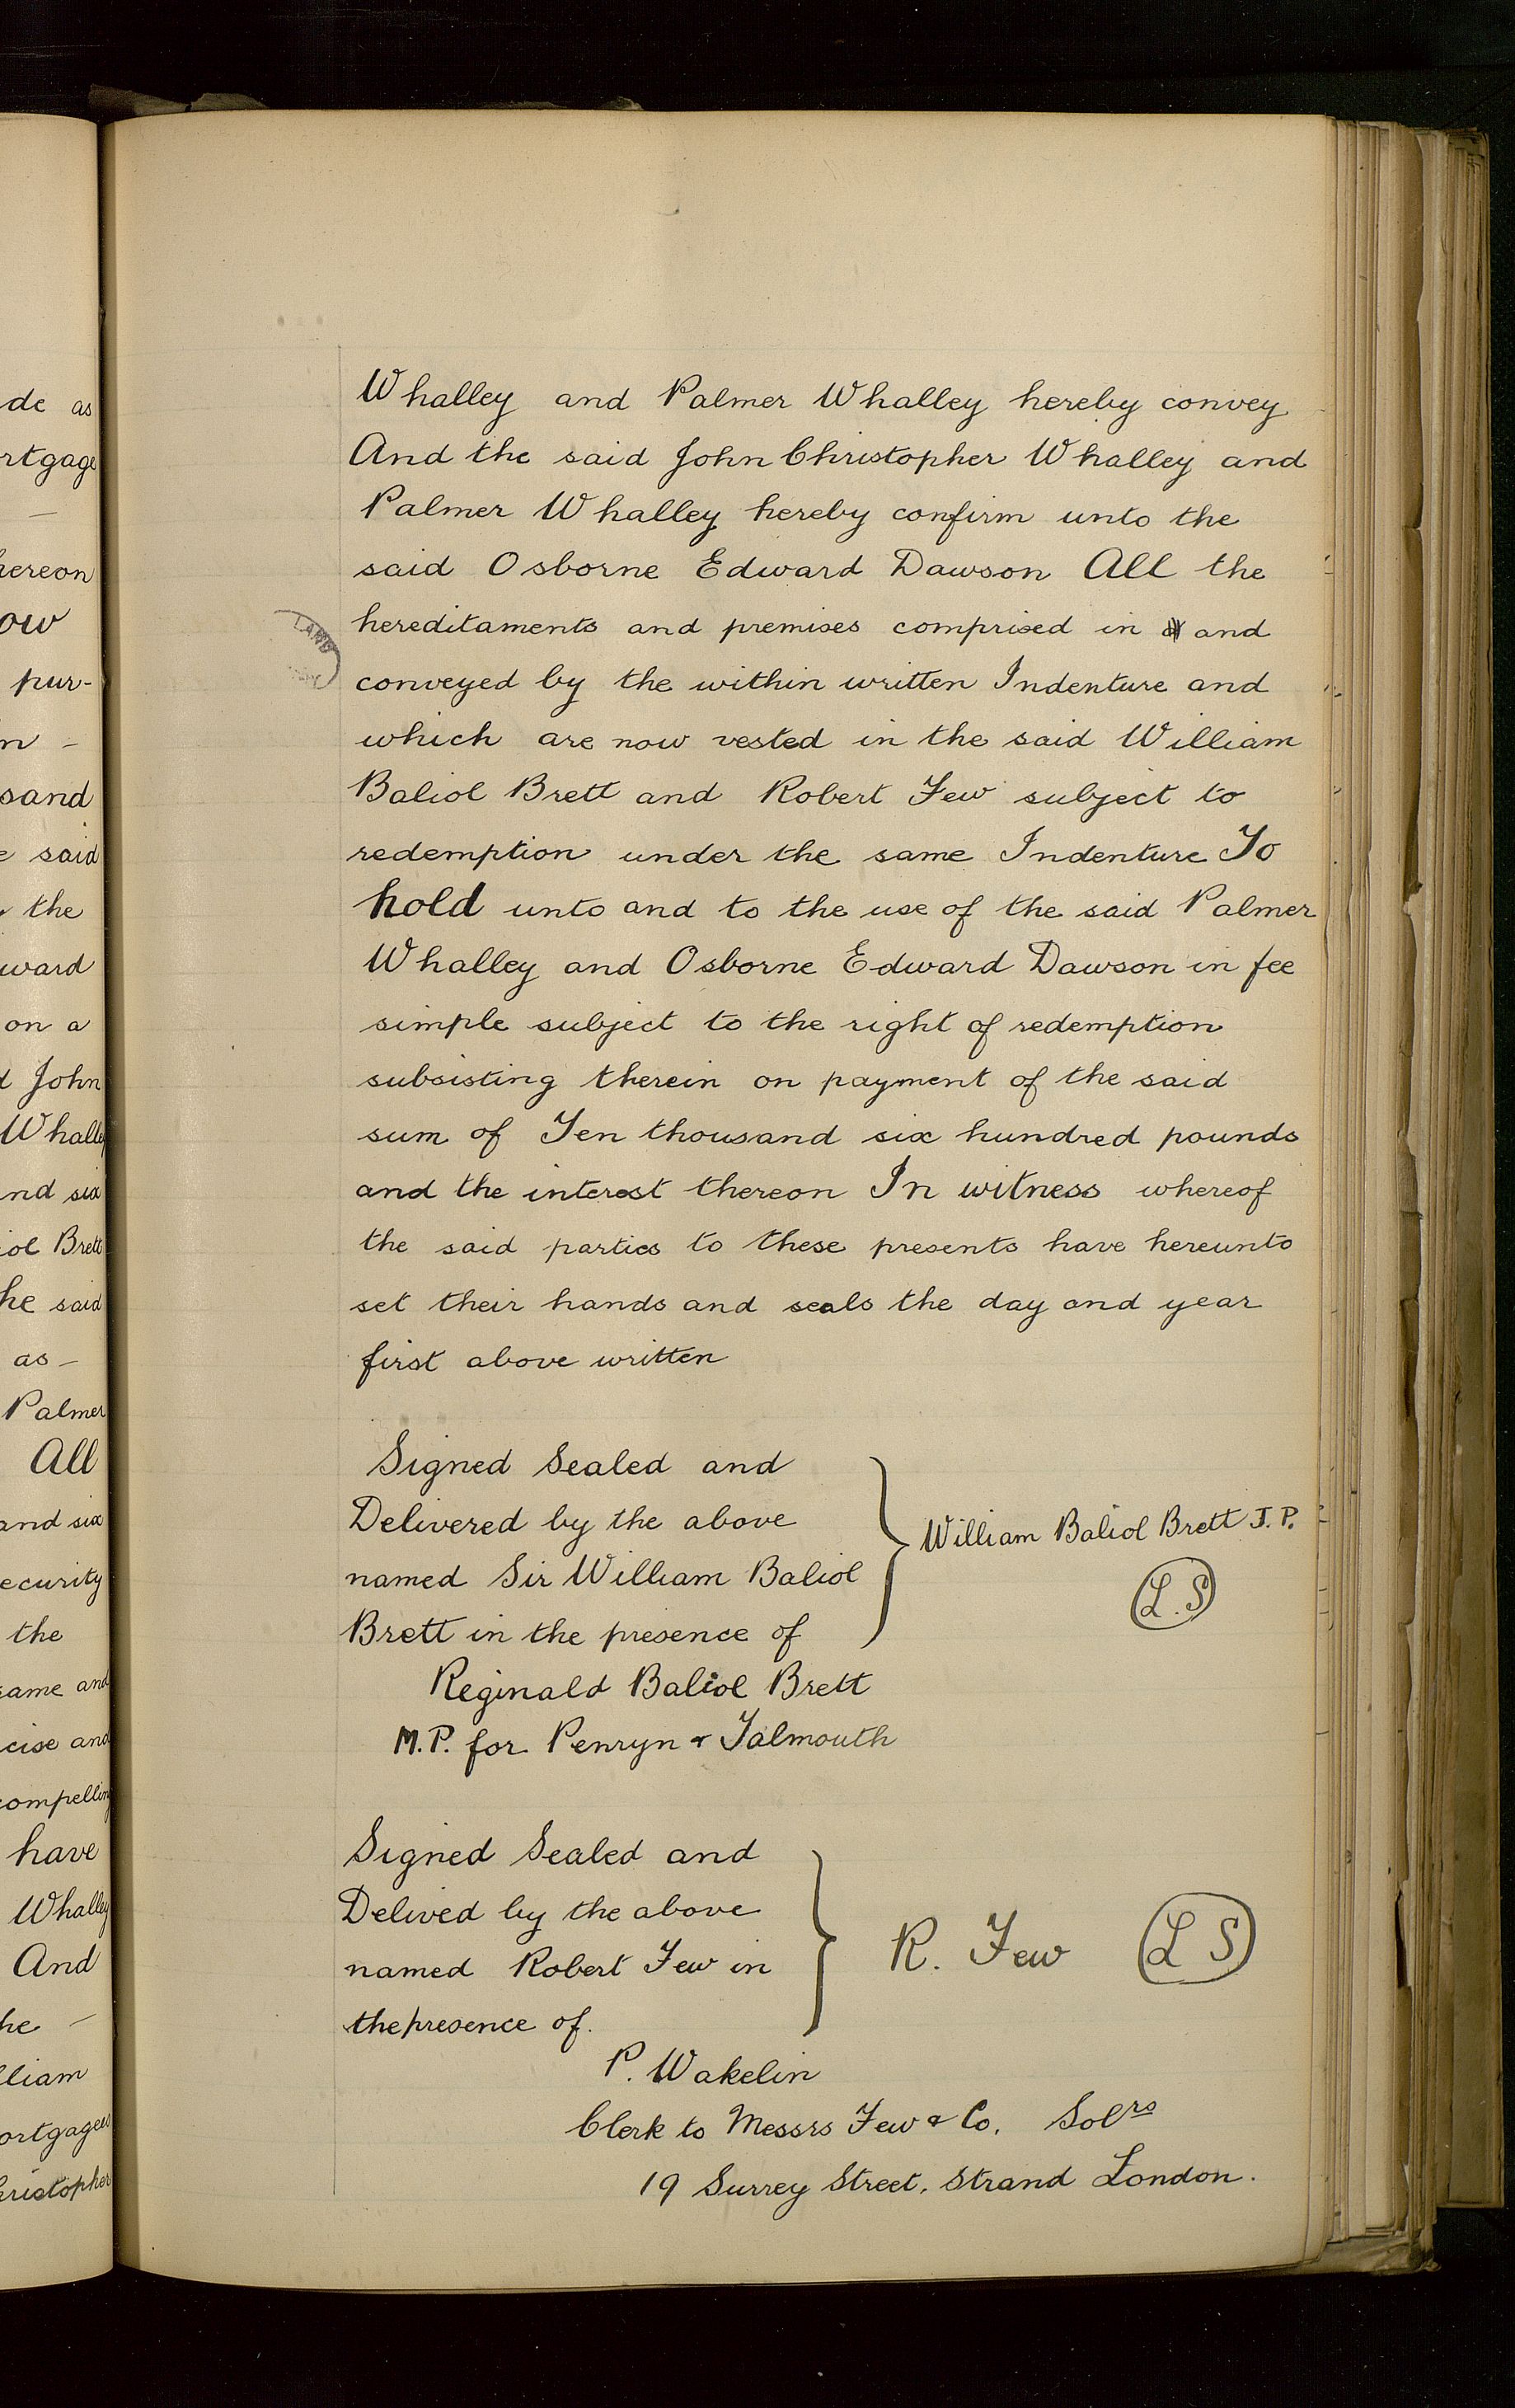 Whalley and Palmer Whalley hereby convey
And the said John Christopher Whalley and
Palmer Whalley hereby confirm unto the
said Osborne Edward Dawson All the
hereditaments and premises comprised in and
conveyed by the within written Indenture and
which are now vested in the said William
Baliol Brett and Robert Few subject to
redemption under the same Indenture To
hold unto and to the use of the said Palmer
Whalley and Osborne Edward Dawson in fee
simple subject to the right of redemption
subsisting therein on payment of the said
sum of Ten thousand six hundred pounds
and the interest thereon In witness whereof
the said parties to these presents have hereunto
set their hands and seals the day and year
first above written
Signed Sealed and
Delivered by the above
named Sir William Baliol
Brett in the presence of
William Baliol Brett J.P.
L.S
Reginald Baliol Brett
M.P. for Penryn & Falmouth
Signed Sealed and
Delived by the above
named Robert Few in
the presence of.
R. Few L S
P. Wakelin
Clerk to Messrs Few & Co. Solrs
19 Surrey Street, Strand London.
LAND
de as
rtgage
hereon
ow
pur-
n -
sand
e said
the
ward
on a
d John
Whalley
nd six
iol Brett
he said
as -
Palmer
All
and six
ecurity
the
same and
cise and
compelling
have
Whalley
And
he -
lliam
ortgagees
hristopher